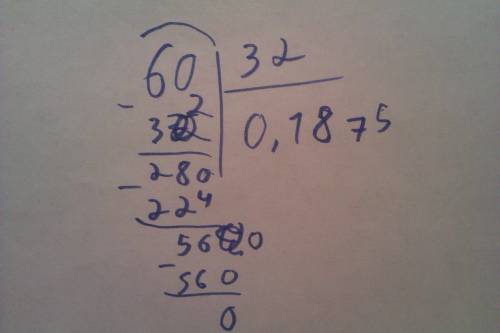 60 32
- 32 0,1875
280
- 224
560
- 560
0